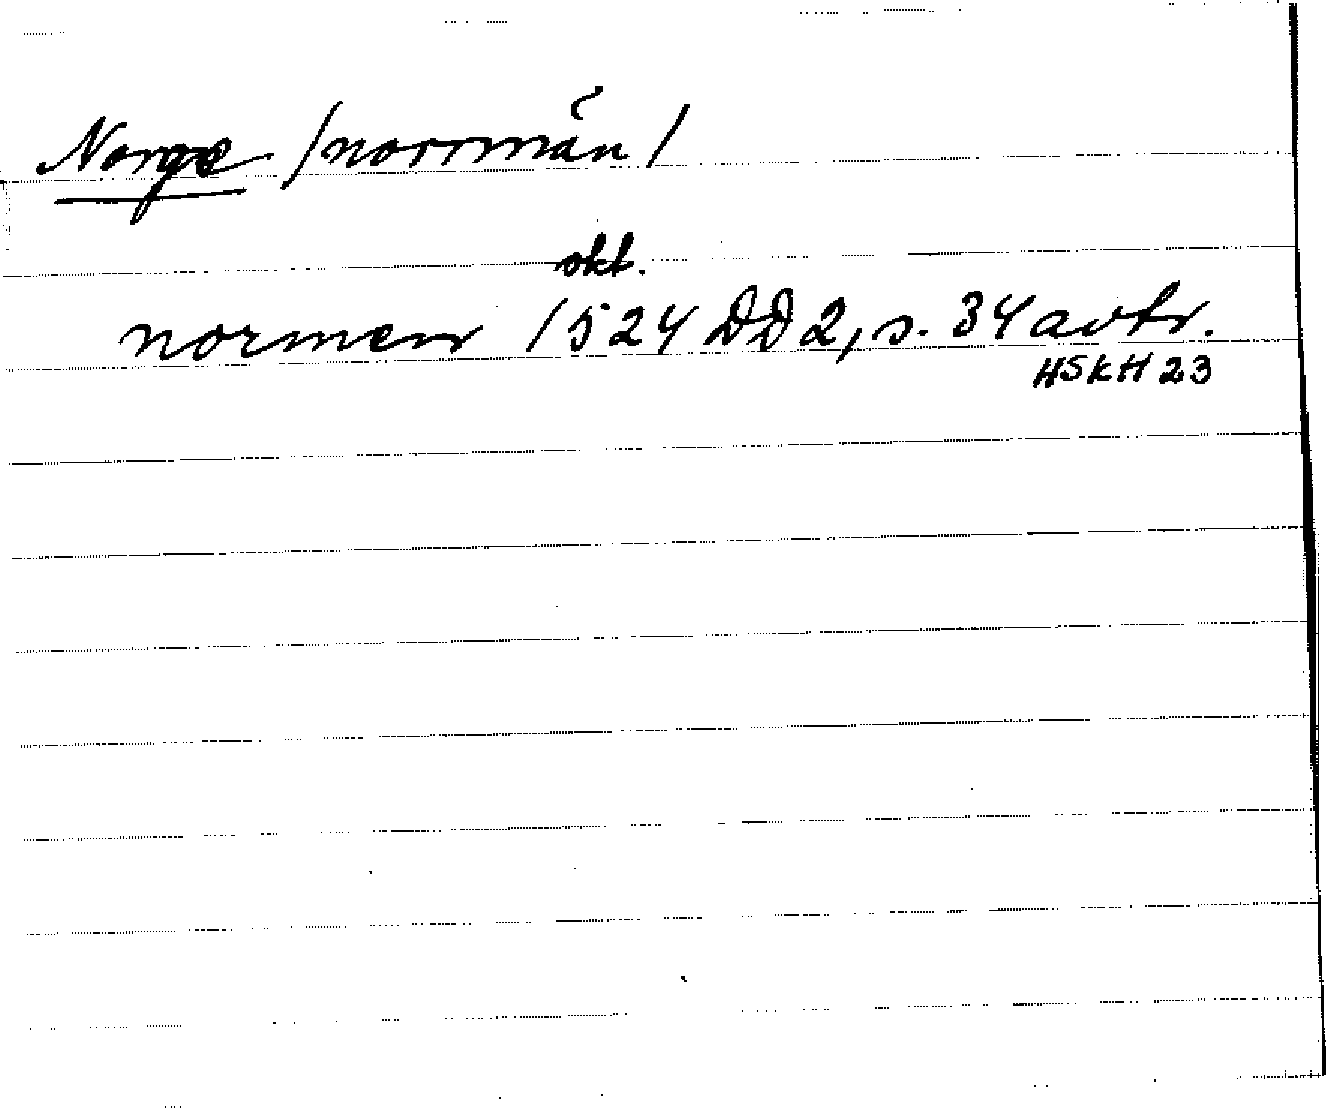 Norge /norrmän/
okt.
normen 1524 DD2, s. 34 avtr.
HSKH 23